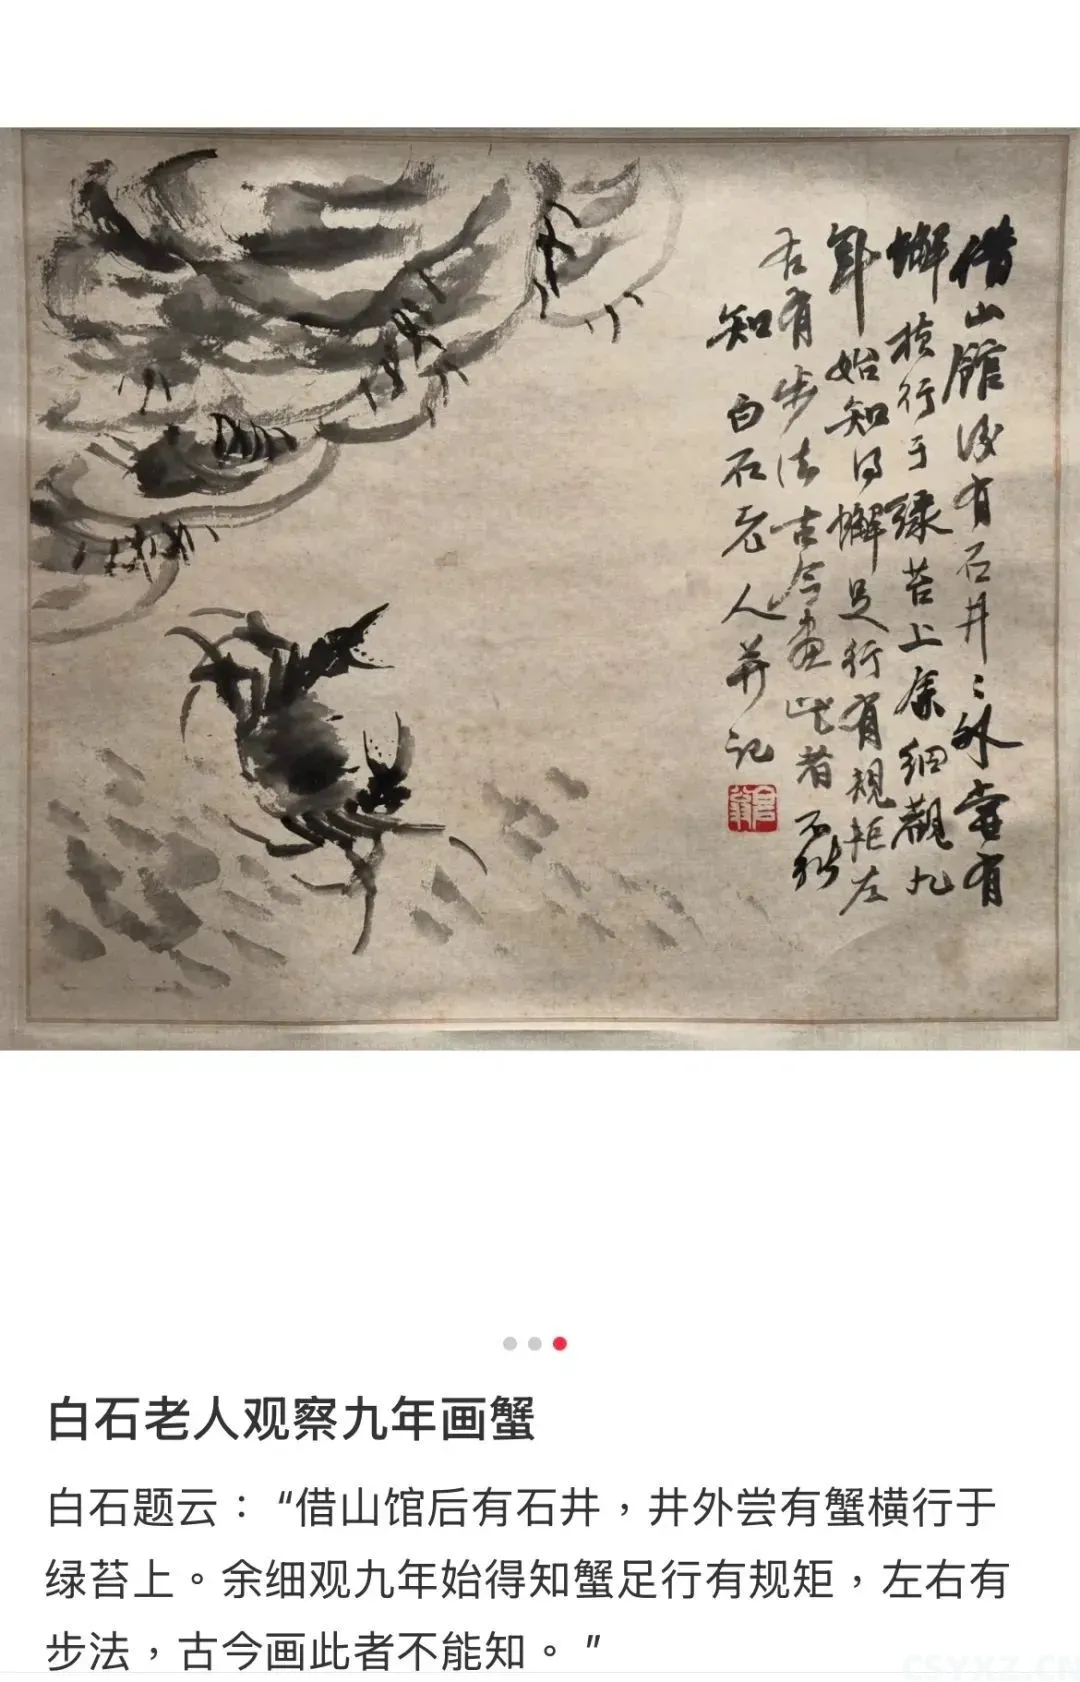 借山館後有石井〻外嘗有
蠏橫行于綠苔上余細觀九
年始知得蠏足行有規矩左
右有步法古今畫此者不能
知 白石老人并記
白石老人观察九年画蟹
白石题云：“借山馆后有石井，井外尝有蟹横行于
绿苔上。余细观九年始得知蟹足行有规矩，左右有
步法，古今画此者不能知。”
CSYXZ.CN